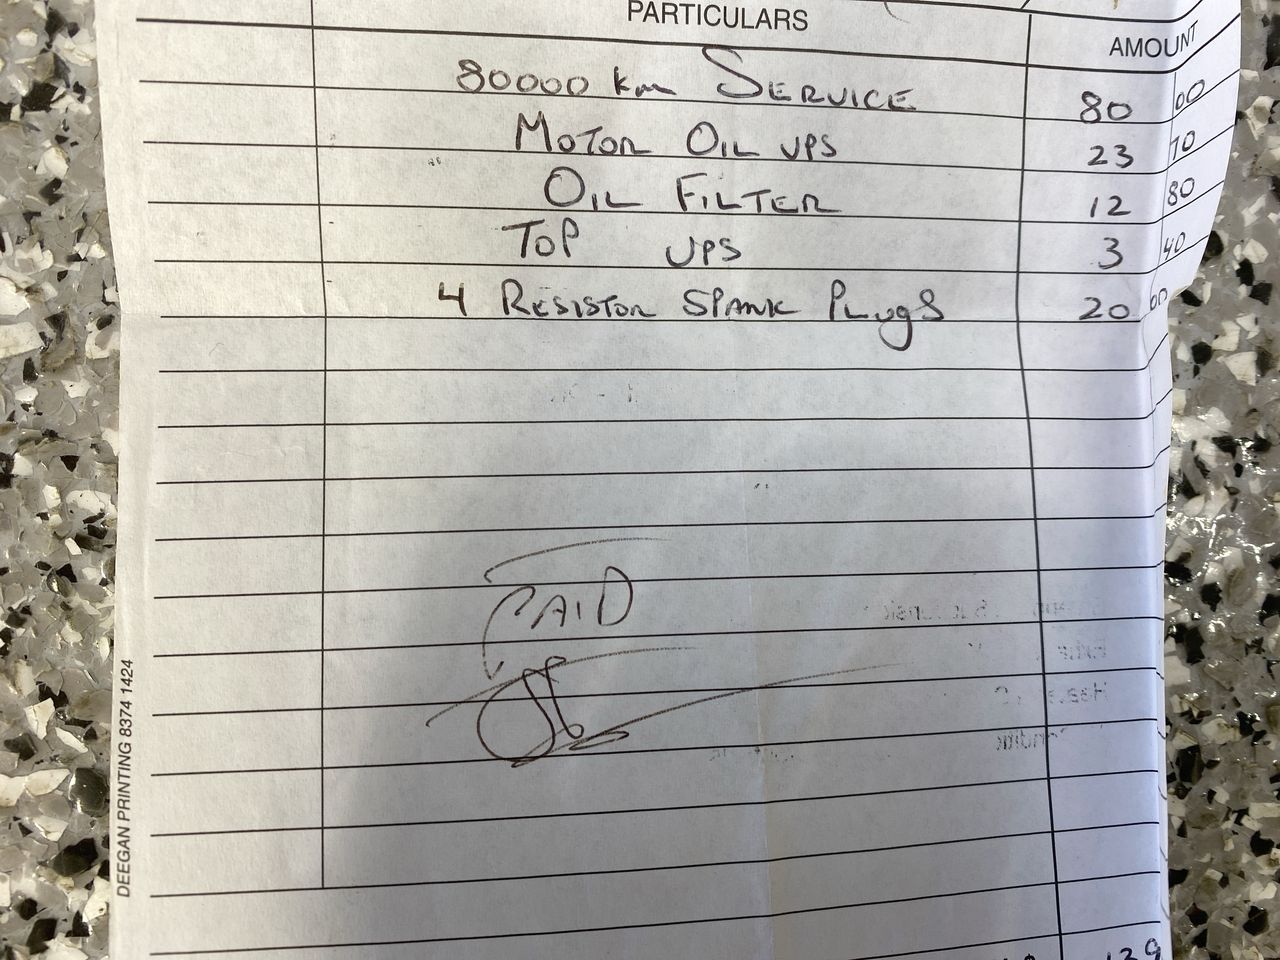 PARTICULARS
AMOUNT
80000 km SERVICE 80 00
MOTOR OIL UPS 23 70
OIL FILTER 12 80
TOP UPS 3 40
4 RESISTOR SPANK PLugS 20 00
PAID
DEEGAN PRINTING 8374 1424
139